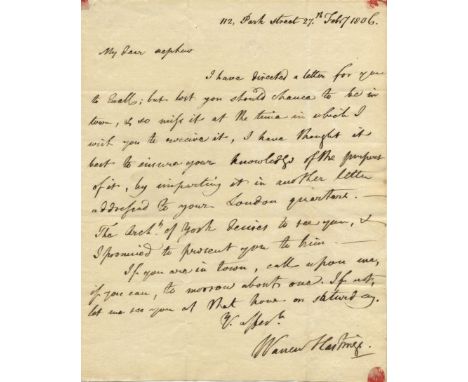 112, Park Street 27.th Feb.y 1806.
My dear nephew
I have directed a letter for you
to Ewell; but lest you should chance to be in
town, & so miss it at the time in which I
wish you to receive it, I have thought it
best to insure your knowledge of the purport
of it, by imparting it in another letter
addressed to your London quarters.
The Arch.p of York desires to see you, &
I promised to present you to him.
If you are in town, call upon me,
if you can, to morrow about one. If not,
let me see you at that hour on Saturday.
Y.r affec.te
Warren Hastings.